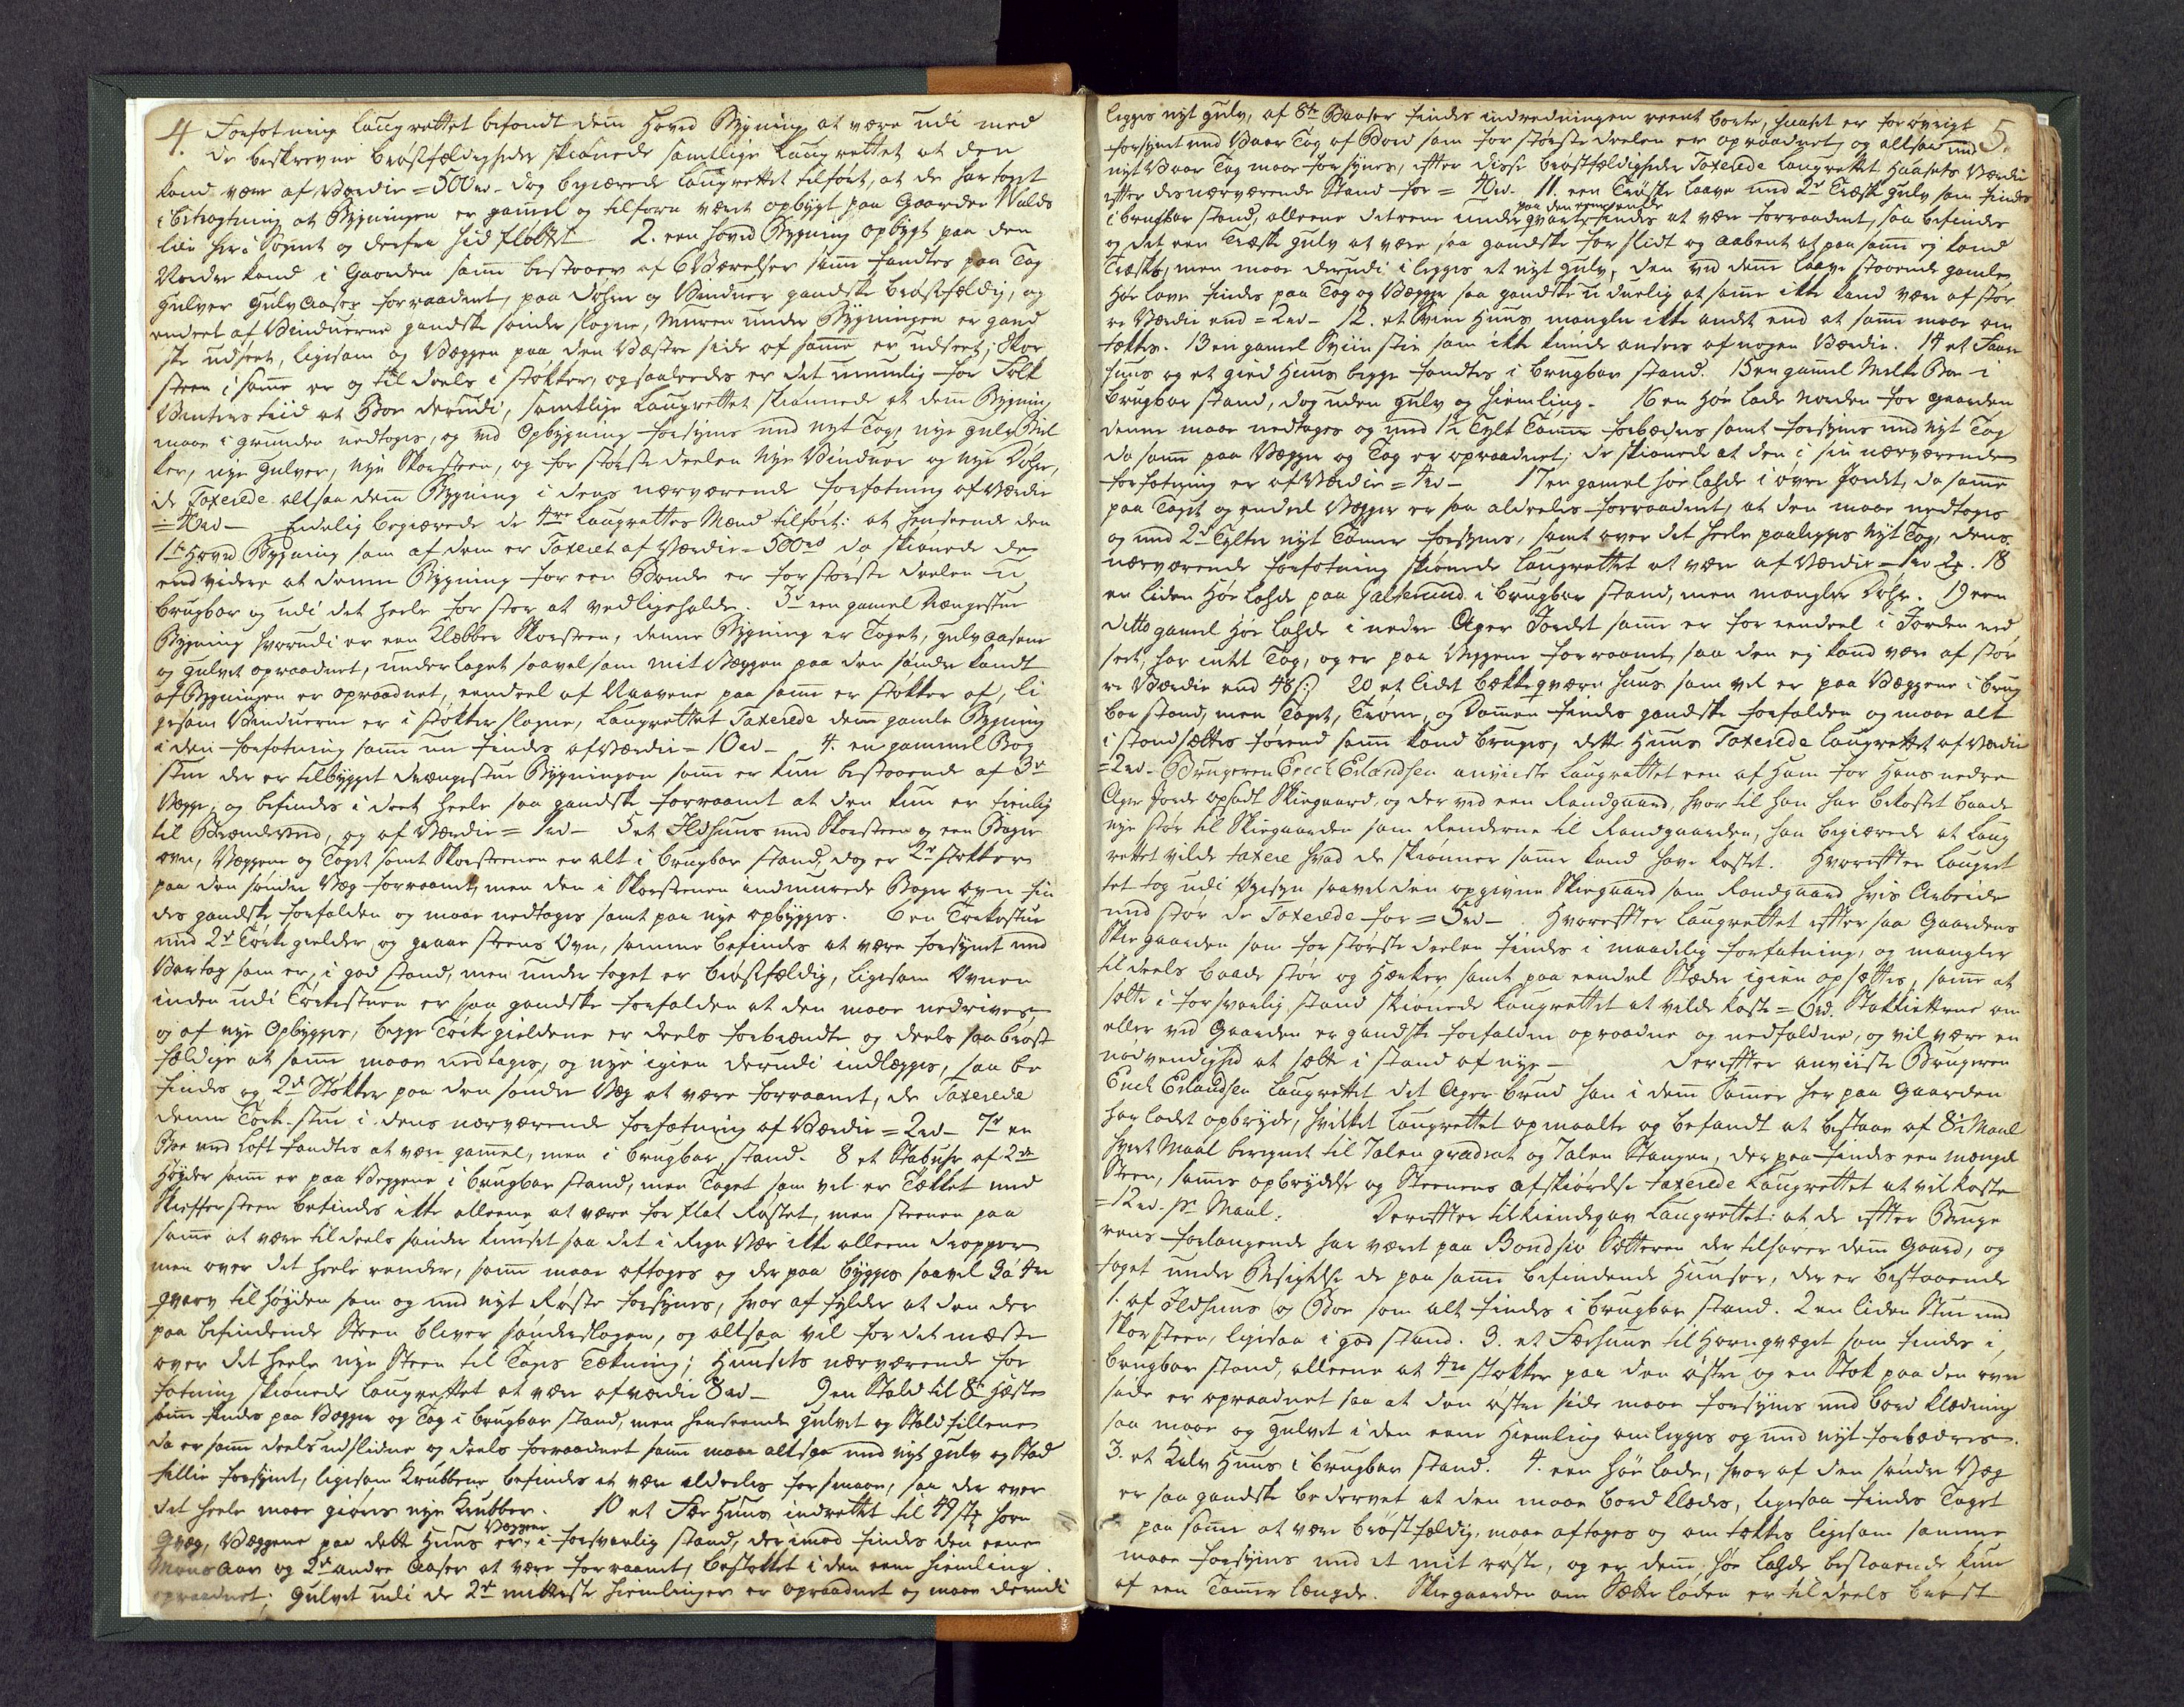 4.
Forfotning laugrettet befandt dem Hoved Bygning at være udi med
de beskrevne brøstfældigheder skiønnede samtlige Laugrettet at den
kand være af Værdie = 500 rd - dog begiærede laugrettet tilført, at de har taget
i betragtning at Bygningen er gamel og tilforn været opbygt paa Gaarden Walds
lie her i Sognet og derfra hid flottet 2. een Hoved Bygning opbygt paa den
Nordre kand i Gaarden samme bestaaer af 6 Værelser samme fandtes paa Tag
Gulver gulvaaser forraadnet, paa Døhre og Vinduer gandske brøstfældig, og
endeel af Vinduerne gandske sønder slagne, Muren under Bygningen er gand
ske udseet, ligesom og Væggen paa den Væstre side af samme er udseet; Skor
steen i samme er og til deels i støkker, og saaledes er det umuelig for Folk
Vinters tiid at Boe derudi, samtlige Laugrettet skiønnede at dem Bygning
maae i grunden nedtages, og ved Opbygning forsynes med nyt Tag, nye gulv Biel
ker, nye gulver, nye Skorsteen, og for største deelen Nye Vinduer og nye Døhre,
de Taxerede altsaa dem Bygning i dens nærværende forfatning af Værdie
= 40 rd - Endelig begiærede de 4re Laugrettes Mænd tilført: at henseende den
1te Hoved Bygning som af dem er Taxeret af Værdie = 500 rd da skiønnede de
end videre at denne Bygning for een Bonde er for største deelen u-
brugbar og udi det heele for stor at vedligeholde. 3de een gamel Drengestue
Bygning hvorudi er een Klæbber Skorsteen, denne Bygning er Taget, gulvaasene
og gulvet opraadnet, underlaget saavelsom mit Væggen paa den søndre kandt
af Bygningen er opraadnet, eendeel af Naavene paa samme er støkker af, li
gesom Vinduerne er i støkker slagne, Laugrettet Taxerede dem gamle Bygning
i den forfatning samme nu findes af Værdie = 10 rd - 4. en gammel Bag
stue der er tilbygget Drængestue Bygningen samme er kun bestaaende af 3de
Vægge, og befindes i deet heele saa gandske forraadnet at den kun er tienlig
til Brændeved, og af Værdie = 1 rd - 5 et Ildhuus med Skorsteen og een Bager
ovn, Væggene og Taget samt Skorsteenen er alt i brugbar stand, dog er 2de støkker
paa den søndre Væg forraadnet, men den i Skorsteenen indmurede Bager ovn fin
des gandske forfalden og maae nedtages samt paa nye opbygges. 6 en Tørkestue
med 2de Tørke gielder og graae steens Ovn, samme befindes at være forsynet med
Bortag som er i god stand, men under taget er brøstfældig, ligesom Ovnen
inden udi Tørkestuen er saa gandske forfalden at den maae nedrives
og af nye Opbygges, begge Tørke gieldene er deels forbrændte og deels saa brøst
fældige at samme maae nedtages, og nye igien derudi indlægges, saa be
findes og 2de Støkker paa den søndre Væg at være forraadnet, de Taxerede
denne Tørk-stue i dens nærværende forfatning af Værdie = 2 rd - 7de en
Boe med Loft fandtes at være gamel, men i brugbar stand. 8 et Stabuhr af 2de
Høyder samme er paa Væggene i brugbar stand, men Taget som vel er Tækket med
Skiffersteen befindes ikke alleene at være for flat Røstet, men steenen paa
samme at være til deels sønder knuset saa det i Regn Vær ikke alleene dropper
men over det heele render, samme maae aftages og der paa bygges saavel 3 á 4re
qvarv til Høyden som og med nyt Røste forsynes, hvor af følder at den der
paa befindende Steen bliver sønderslagen, og altsaa vil for det meeste
over det heele nye Steen til Tagets Tækning; Huusets nærværende for
fatning skiønnede laugrettet at være af værdie 8 rd - 9 en Stald til 8te Hæste
samme findes paa Vægger og Tag i brugbar stand, men henseende gulvet og Stald fillene
da er samme deels udslidne og deels forraadnet samme maae altsaa med nyt gulv og Stad
fillie forsynet, ligesom Krubbene befindes at være aldeeles for smaae, saa der over
det heele maae giøres nye Krubber. 10 et Fæe Huus indrettet til 49 stk horn
qvæg, Væggene paa dette Huus er i forsvarlig stand, derimod findes den eene
Moensaas og 2de andre aaser at være forraadnet, bestøttet i den eene hiemling
opraadnet; gulvet udi de 2de mitterste hiemlinger er opraadnet og maae derudi
5.
legges nyt gulv, af 8te Baaser findes indredningen reent borte, huuset er for øvrigt
forsynet med Baar Tag af Bord som for største deelen er opraadnet, og altsaa med
nyt Baar Tag maae forsynes, efter disse brøstfældigheder Taxerede laugrettet Huusets Værdie
efter des nærværende Stand for = 40 rd. 11. een Trøske laave med 2de Træske gulv som findes
i brugbar stand, alleene det eene under qvart findes at være forraadnet, saa befindes
og det een Træske gulv at være saa gandske for slidt og aabent at paa samme ej kand
Træskes, men maae derudi i legges et nyt gulv, den ved denne laave staaende gamle
Høe lave findes paa Tag og Vægge saa gandske u duelig at samme ikke kand være af stør
re Værdie end = 2 rd - 12. et Svine Huus mangler ikke andet end at samme maae om
tækkes. 13 en gamel Sviin stie som ikke kunde ansees af nogen Værdie. 14 et Faare
huus og et gied Huus begge fandtes i brugbar stand. 15 en gamel Melke Boe i
brugbar stand, dog uden gulv og hiemling. 16 en Høe lade Norden for gaarden
denne maae nedtages og med 1½ Tylt Tømmer forbedres samt forsynes med nyt Tag
da samme paa Vægge og Tag er opraadnet; de skiønnede at den i sin nærværende
forfatning er af Værdie = 4 rd - 17 en gamel høe lahde i øvre Jordet, da samme
paa Taget og endeel Vægger er saa aldeeles forraadnet, at den maae nedtages
og med 2de Tylter nyt Tømmer forsynes, samt over det heele paalegges nyt Tag, dens
nærværende forfatning skiønnede laugrettet at være af Værdie = 1 rd 2 . 18
en liden Høe lahde paa Galterund i brugbar stand, men mangler Døhr. 19 een
ditto gamel Høe lahde i nedre Ager Jordet samme er for eendeel i Jorden ned
seet, har intet Tag, og er paa Væggene forraadnet, saa den ej kand være af stør
re Værdie end 48 s. 20 et lidet bække qværn huus som vel er paa Væggene i brug
bar stand, men Taget, Trøeme, og Dammen findes gandske forfalden og maae alt
i stand sættes førend samme kand bruges, dette Huus Taxerede laugrettet af Værdie
= 2 rd - Brugeren Erich Erlandsen anviiste laugrettet een af Ham for Hans nedre
Ager Jorde opsadt Skiegaard, og der ved een Randgaard, hvor til han har bekostet baade
nye stør til Skiegaarden som Renderne til Randgaarden, han begiærede at Laug
rettet vilde taxere hvad de skiønner samme kand have kostet. Hvorefter laugret
tet tog udi Øyesyn saavel den opgivne Skiegaard som Randgaard hvis Arbeide
med stør de Taxerede for = 5 rd - Hvorefter laugrettet efter saa Gaardens
Skiegaarden som for største deelen findes i maadelig forfatning, og mangler
til deels baade stør og Hanker samt paa eendeel Stæder igien opsættes, samme at
sætte i forsvarlig stand skiønnede laugrettet at vilde koste = 6 rd. Stakkittene om
eller ved Gaarden er gandske forfalden opraadne og nedfaldne, og vil være en
nødvendighed at sætte i stand af nye - Derefter anviiste Brugeren
Erich Erlandsen laugrettet det Ager brud han i dem Sommer her paa Gaarden
har ladet opbryde, hvilket laugrettet opmaalte og befandt at bestaae af 8½ Maal
hvert Maal beregnet til 7 alen qvadrat og 7 alen Stangen, der paa findes een mængde
Steen, sammes opbrydelse og Steenens afskiørdsl taxerede laugrettet at vil koste
= 12 rd. pr Maal. Derefter tilkiendegav laugrettet: at de efter Bruge
rens forlangende har været paa Bondlie Sætteren der tilhører dem Gaard, og
taget under Besigtelse de paa samme befindende Huuser, der er bestaaende
1. af Ildhuus og Boe som alt findes i brugbar stand. 2 en liden Stue med
skorsteen, ligesaa i god stand. 3. et Fæehuus til Hornqvæget som findes i
brugbar stand, alleene at 4re stokker paa den østre og en Stok paa den øvre
side er opraadnet saa at den østre side maae forsynes med bord klædning
saa maae og gulvet i den eene Hiemling omlegges og med nyt forbædres.
3. et Kalv Huus i brugbar stand. 4. een høe lade, hvor af den søndre Væg
er saa gandske bedervet at den maae bord klædes, ligesaa findes Taget
paa samme at være brøstfældig, maae aftages og om tækkes ligesom samme
maae forsynes med et mit røste, og er dem høe lahde bestaaende kun
af een Tømmer længde. Skiegaarden om Sætter løkken er til deels brøst